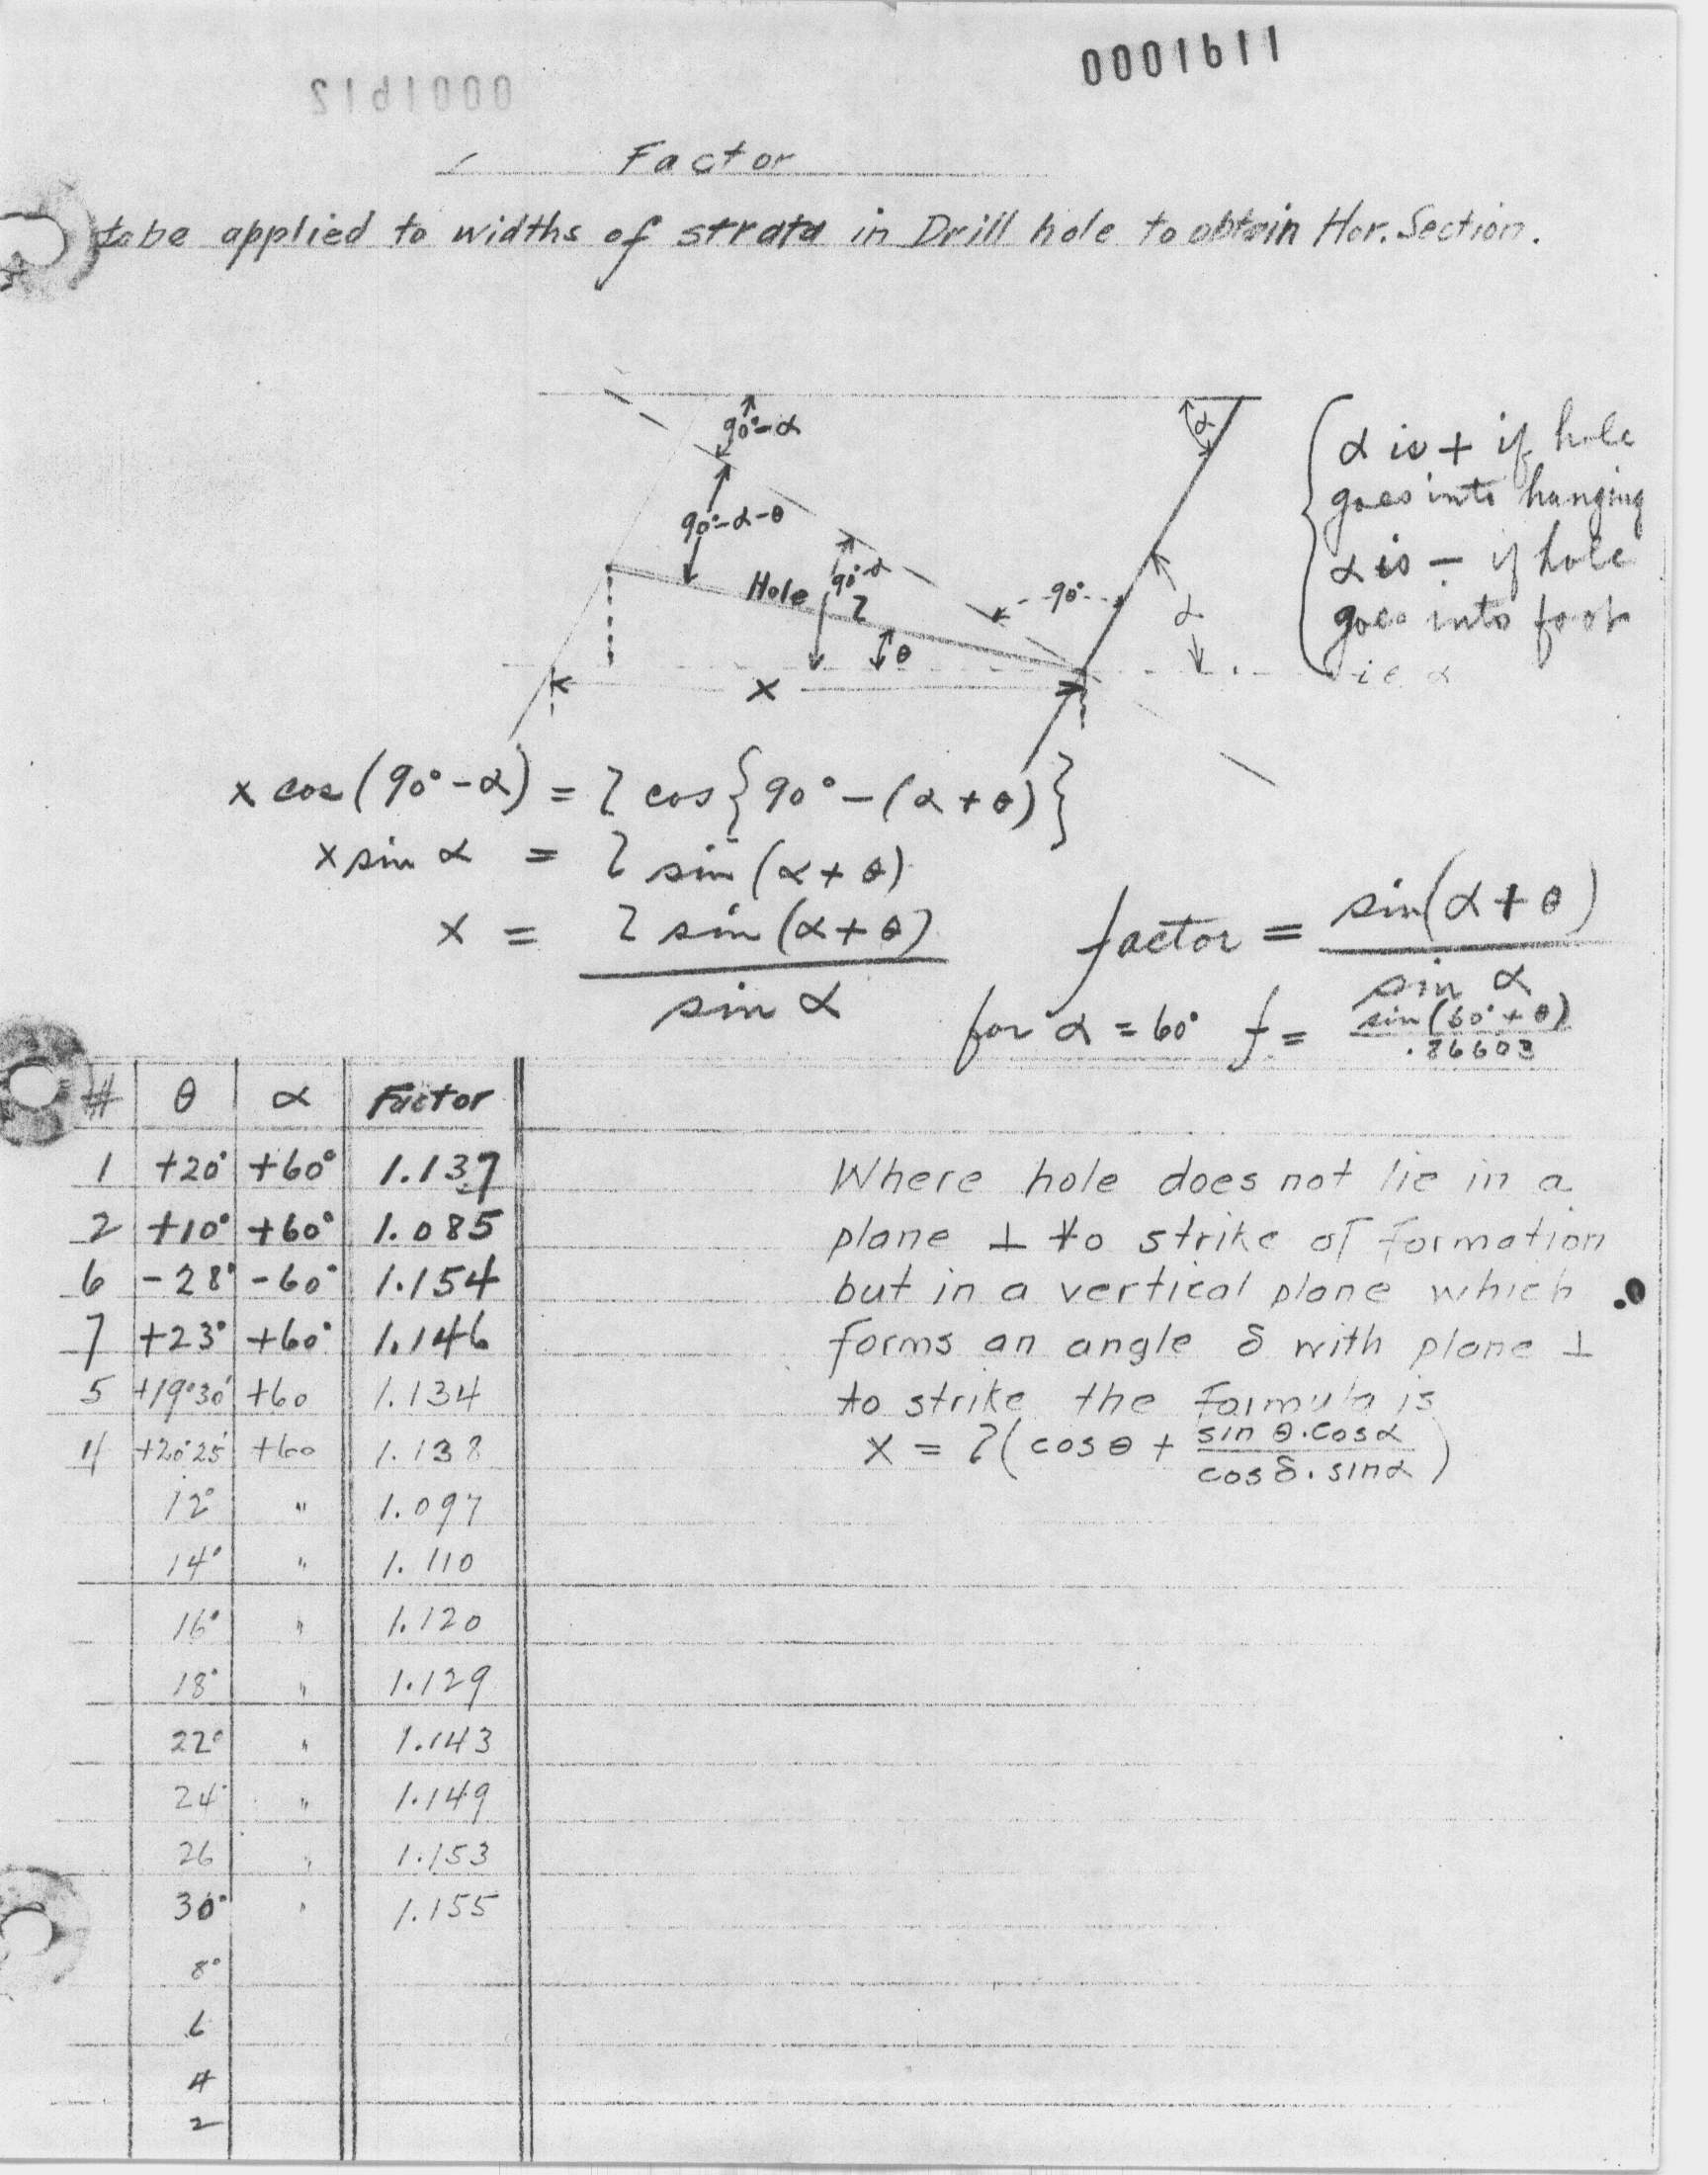 0001611
0001612
Factor
to be applied to widths of strata in Drill hole to obtain Hor. Section.
90°-α
α
90°-α-θ
Hole
90°-α
l
90°
α
θ
x
{ α is + if hole
goes into hanging
α is - if hole
goes into foot
i.e. α
x cos (90°-α) = l cos {90° - (α+θ)}
x sin α = l sin (α+θ)
x = l sin (α+θ) / sin α
factor = sin(α+θ) / sin α
for α = 60° f = sin(60°+θ) / .86603
# θ α Factor
1 +20° +60° 1.137
2 +10° +60° 1.085
6 -28° -60° 1.154
7 +23° +60° 1.146
5 +19°30' +60 1.134
4 +20°25' +60 1.138
12° " 1.097
14° " 1.110
16° " 1.120
18° " 1.129
22° " 1.143
24° " 1.149
26 " 1.153
30° " 1.155
8°
6
4
2
Where hole does not lie in a
plane ⊥ to strike of formation
but in a vertical plane which
forms an angle δ with plane ⊥
to strike the formula is
x = l (cos θ + sin θ · cos α / cos δ · sin α)